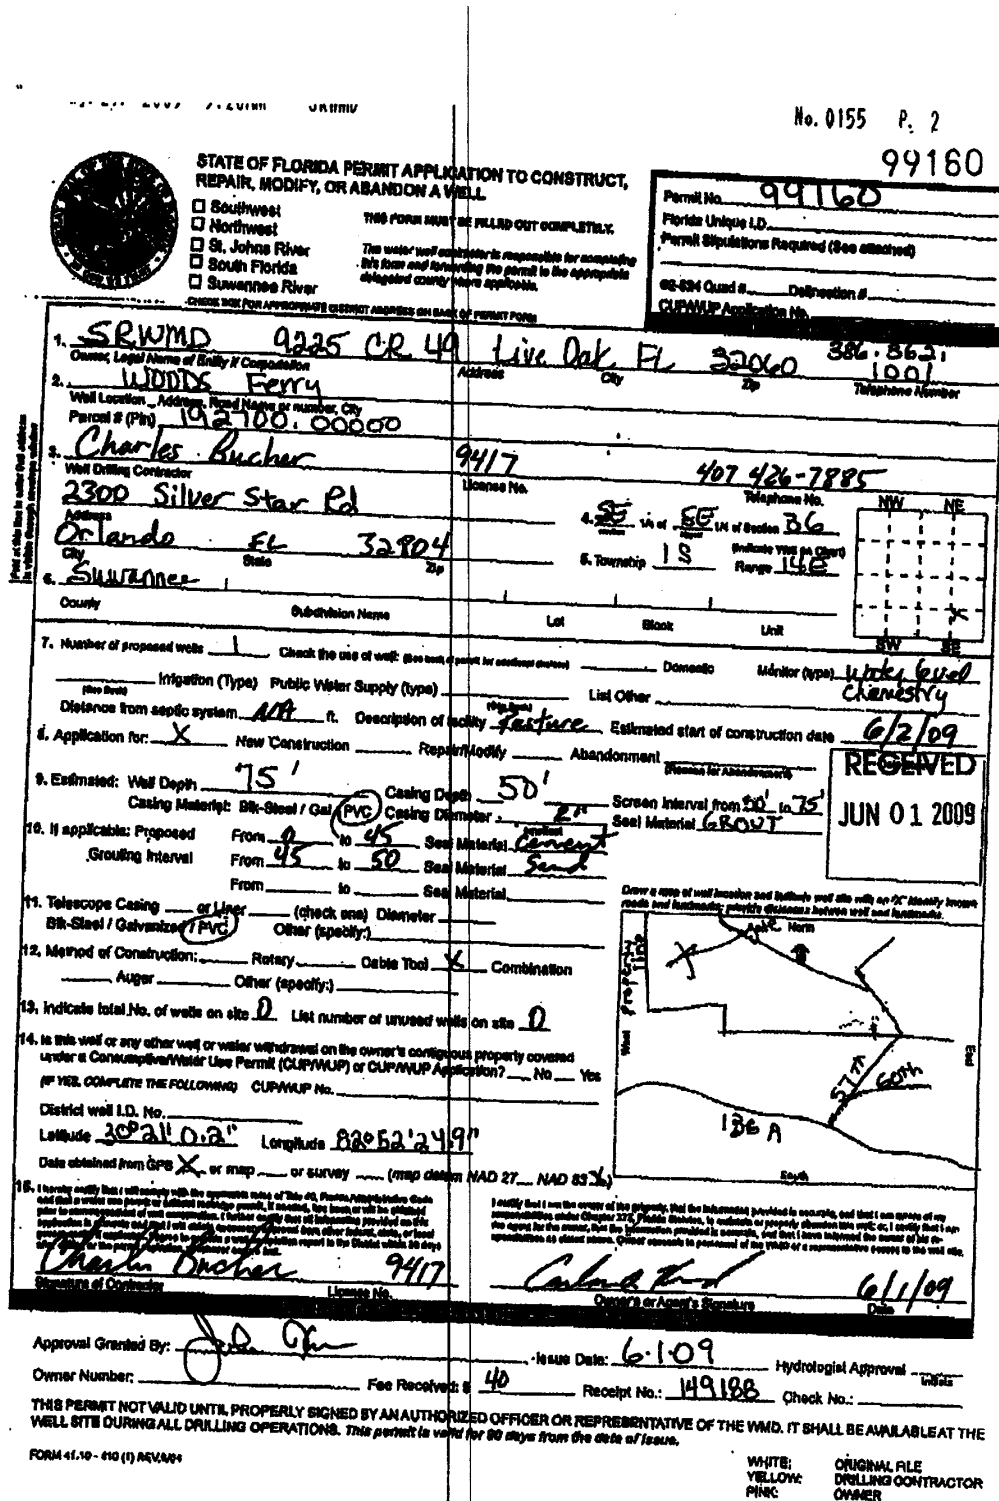 No. 0155 P. 2
99160
STATE OF FLORIDA PERMIT APPLICATION TO CONSTRUCT,
REPAIR, MODIFY, OR ABANDON A WELL
☐ Southwest
☐ Northwest
☐ St. Johns River
☐ South Florida
☐ Suwannee River
THIS FORM MUST BE FILLED OUT COMPLETELY.
The water well contractor is responsible for completing
this form and forwarding the permit to the appropriate
delegated county where applicable.
CHECK BOX FOR APPROPRIATE DISTRICT ADDRESS ON BACK OF PERMIT FORM
Permit No. 99160
Florida Unique I.D.
Permit Stipulations Required (See attached)
62-524 Quad # Delineation #
CUP/WUP Application No.
1. SRWMD 9225 CR 49 Live Oak FL 32060 386.362.1001
Owner, Legal Name of Entity if Corporation Address City Zip Telephone Number
2. Woods Ferry
Well Location _ Address, Road Name or number, City
Parcel # (Pin) 192700.00000
3. Charles Bucher 9417 407 426-7885
Well Drilling Contractor License No. Telephone No.
2300 Silver Star Rd
Address
4. SE 1/4 of SE 1/4 of Section 36
Orlando FL 32804
City State Zip
5. Township 1S Range 14E
(Indicate Well on Chart)
NW NE
X
SW SE
6. Suwannee
County Subdivision Name Lot Block Unit
7. Number of proposed wells 1 Check the use of well: Domestic Monitor (type) Water level
chemestry
Irrigation (Type) Public Water Supply (type) List Other
Distance from septic system NA ft. Description of facility Pasture Estimated start of construction date 6/2/09
8. Application for: X New Construction Repair/Modify Abandonment
(Reason for Abandonment)
RECEIVED
JUN 01 2009
9. Estimated: Well Depth 75' Casing Depth 50' Screen Interval from 50' to 75'
Casing Material: Blk-Steel / Gal / PVC Casing Diameter 2" Seal Material GROUT
10. If applicable: Proposed From 0 to 45 Seal Material Cement
Grouting Interval From 45 to 50 Seal Material Sand
From to Seal Material
11. Telescope Casing or Liner (check one) Diameter
Blk-Steel / Galvanized / PVC Other (specify:)
12. Method of Construction: Rotary Cable Tool X Combination
Auger Other (specify:)
13. Indicate total No. of wells on site 0 List number of unused wells on site 0
14. Is this well or any other well or water withdrawal on the owner's contiguous property covered
under a Consumptive/Water Use Permit (CUP/WUP) or CUP/WUP Application? No Yes
(IF YES, COMPLETE THE FOLLOWING) CUP/WUP No.
District well I.D. No.
Latitude 30°21' 0.2" Longitude 82°52'24.9"
Data obtained from GPS X or map or survey (map datum NAD 27 NAD 83 X)
Draw a map of well location and indicate well site with an "X". Identify known
roads and landmarks; provide distances between well and landmarks.
North
property line
X
West
East
57th
60th
136 A
South
Charles Bucher 9417
Signature of Contractor License No.
6/1/09
Owner's or Agent's Signature Date
Approval Granted By: Issue Date: 6.1.09 Hydrologist Approval
Initials
Owner Number: Fee Received: $ 40 Receipt No.: 149188 Check No.:
THIS PERMIT NOT VALID UNTIL PROPERLY SIGNED BY AN AUTHORIZED OFFICER OR REPRESENTATIVE OF THE WMD. IT SHALL BE AVAILABLE AT THE
WELL SITE DURING ALL DRILLING OPERATIONS. This permit is valid for 90 days from the date of issue.
WHITE: ORIGINAL FILE
YELLOW: DRILLING CONTRACTOR
PINK: OWNER